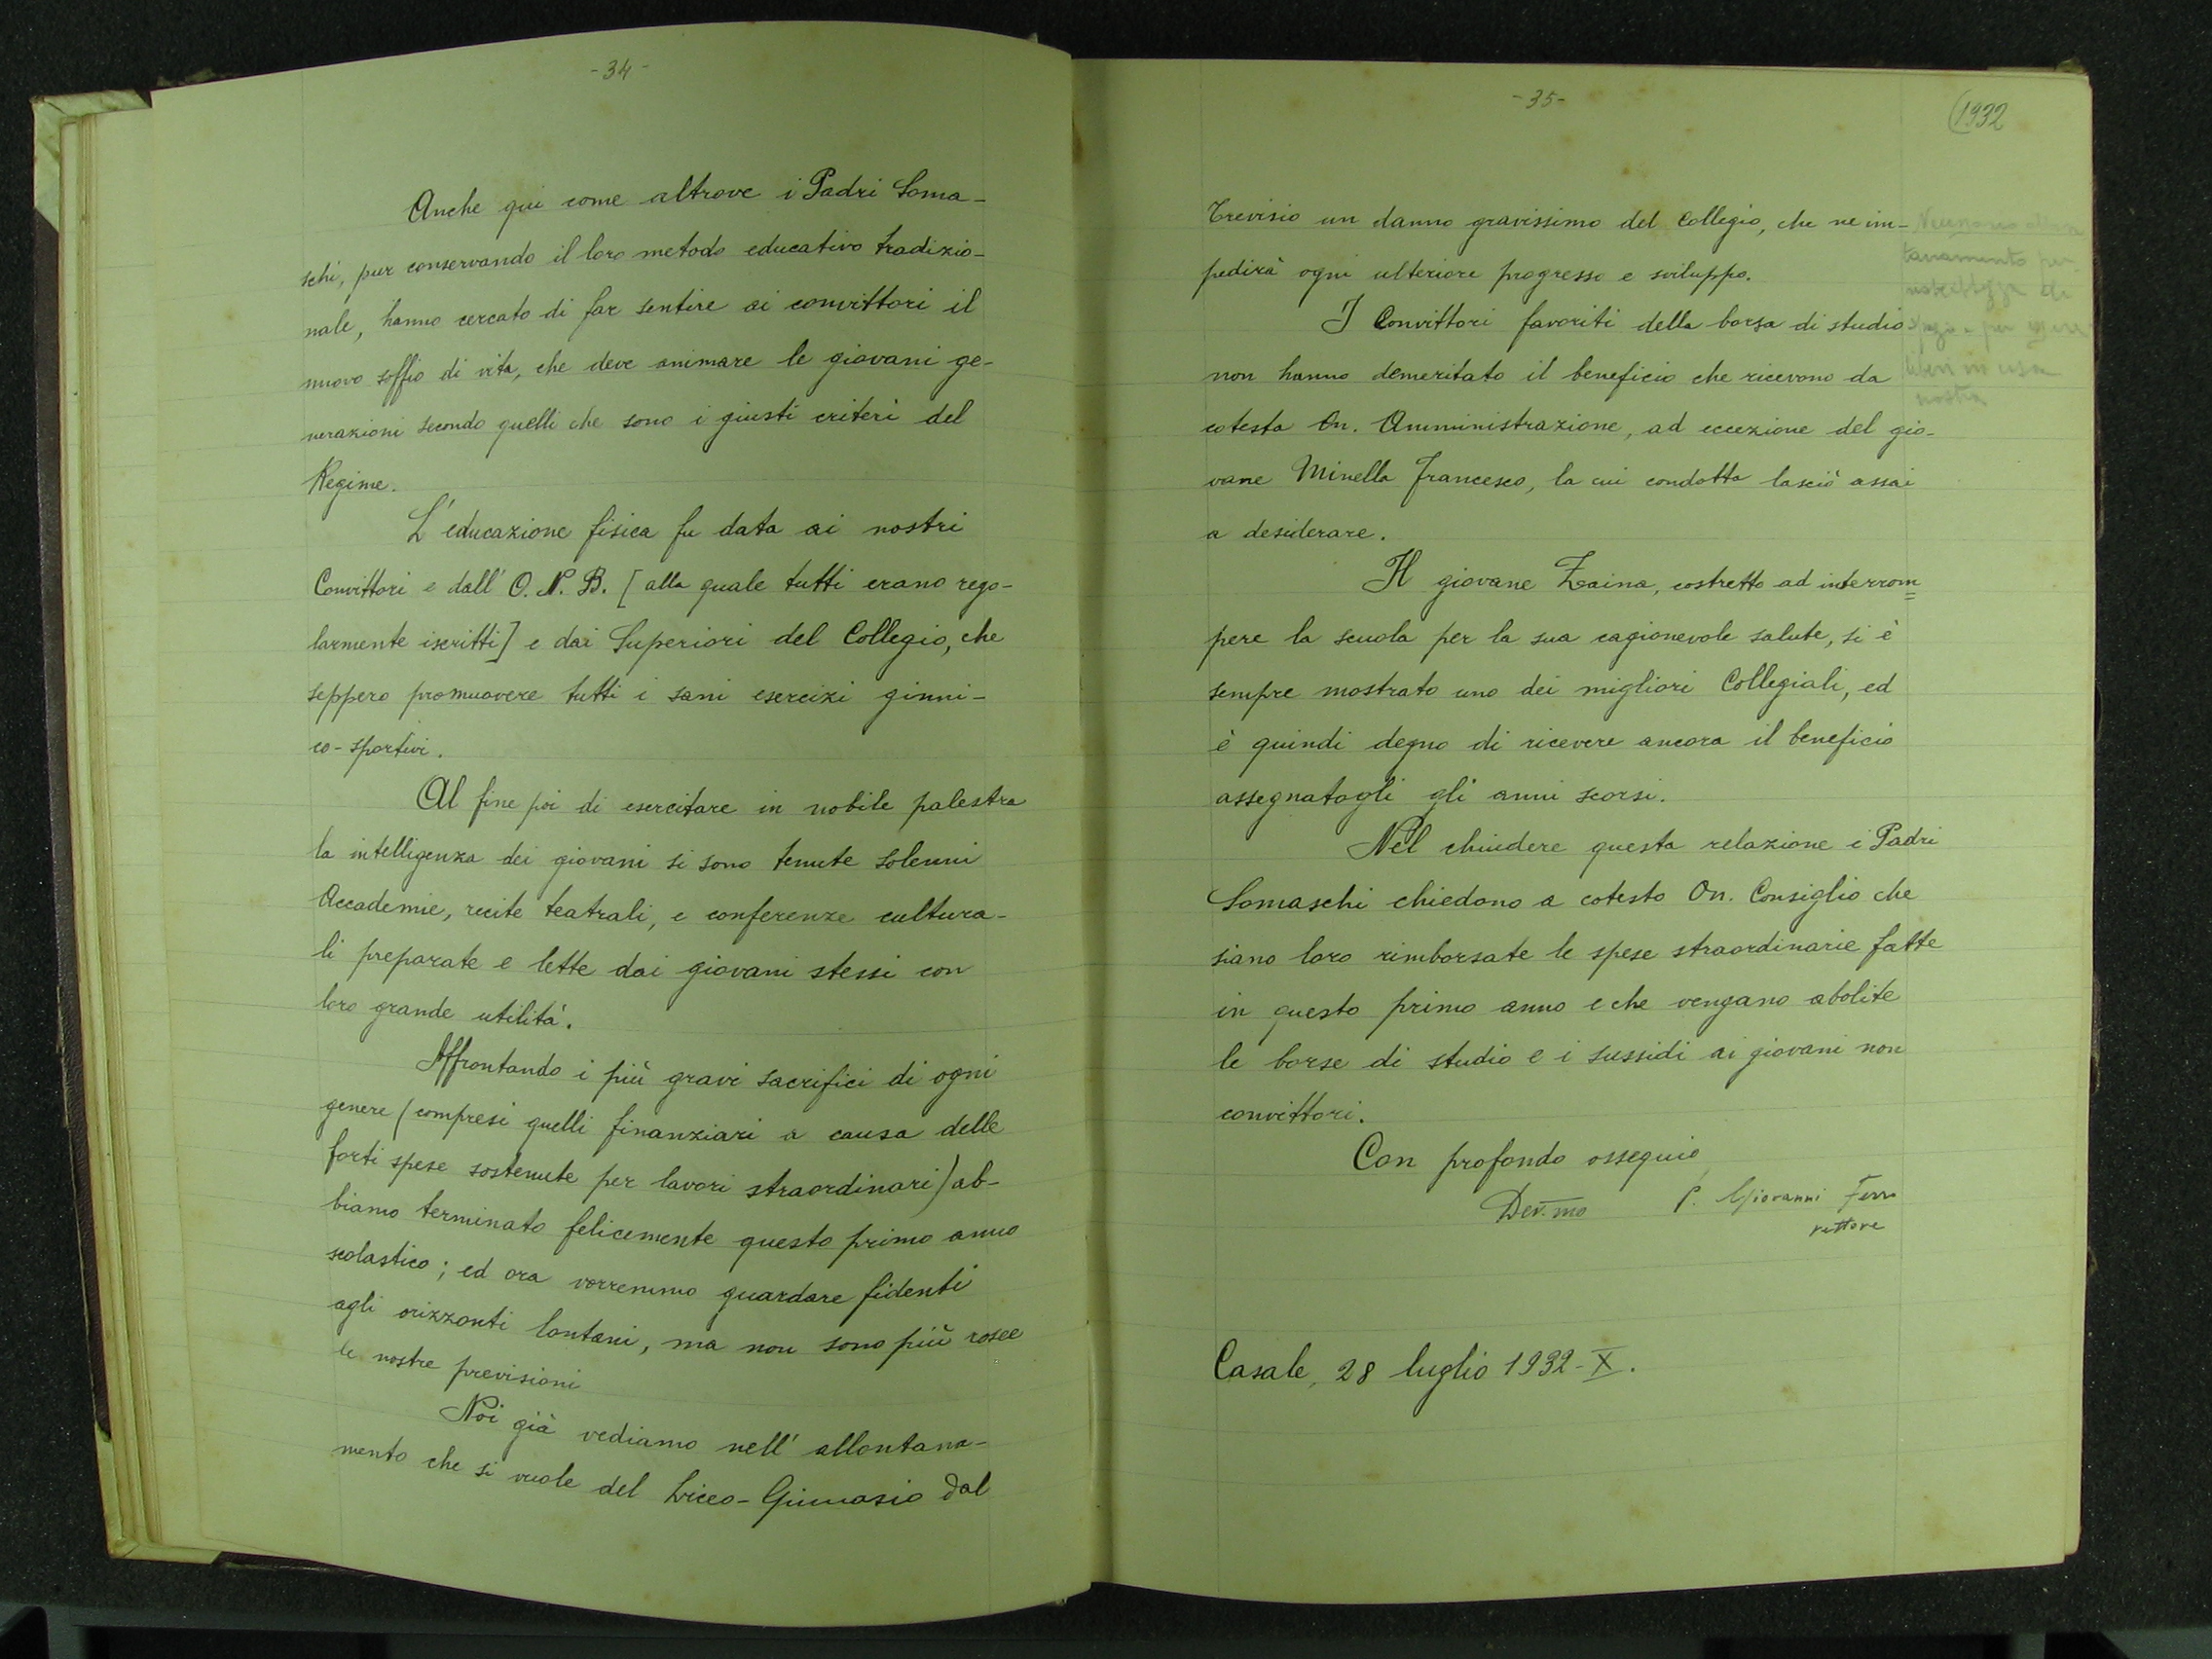 - 34 -
Anche qui come altrove i Padri Soma-
schi, pur conservando il loro metodo educativo tradizio-
nale, hanno cercato di far sentire ai convittori il
nuovo soffio di vita, che deve animare le giovani ge-
nerazioni secondo quelli che sono i giusti criteri del
Regime.
L'educazione fisica fu data ai nostri
Convittori e dall' O. N. B. [alla quale tutti erano rego-
larmente iscritti] e dai Superiori del Collegio, che
seppero promuovere tutti i sani esercizi ginni-
co-sportivi.
Al fine poi di esercitare in nobile palestra
la intelligenza dei giovani si sono tenute solenni
Accademie, recite teatrali, e conferenze cultura-
li preparate e lette dai giovani stessi con
loro grande utilità.
Affrontando i più gravi sacrifici di ogni
genere (compresi quelli finanziari a causa delle
forti spese sostenute per lavori straordinari) ab-
biamo terminato felicemente questo primo anno
scolastico; ed ora vorremmo guardare fidenti
agli orizzonti lontani, ma non sono più rosee
le nostre previsioni
Noi già vediamo nell' allontana-
mento che si vuole del Liceo-Ginnasio dal
- 35 -
(1932
Trevisio un danno gravissimo del Collegio, che ne im-
pedirà ogni ulteriore progresso e sviluppo.
I Convittori favoriti della borsa di studio
non hanno demeritato il beneficio che ricevono da
cotesta On. Amministrazione, ad eccezione del gio-
vane Minella Francesco, la cui condotta lasciò assai
a desiderare.
Il giovane Zaina, costretto ad interrom=
pere la scuola per la sua cagionevole salute, si è
sempre mostrato uno dei migliori Collegiali, ed
è quindi degno di ricevere ancora il beneficio
assegnatogli gli anni scorsi.
Nel chiudere questa relazione i Padri
Somaschi chiedono a cotesto On. Consiglio che
siano loro rimborsate le spese straordinarie fatte
in questo primo anno e che vengano abolite
le borse di studio e i sussidi ai giovani non
convittori.
Con profondo ossequio
Dev.mo P. Giovanni Ferro
rettore
Casale, 28 luglio 1932-X.
tanamento per
nostra